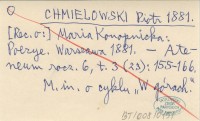 CHMIELOWSKI Piotr 1881.
[Rec. o:] Maria Konopnicka:
Poezye. Warszawa 1881. — Ate-
neum rocz. 6, t. 3 (23): 155-166.
M. in. o cyklu „W górach."